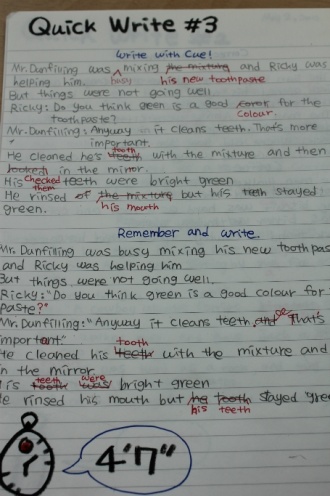 Quick Write #3
Write with Cue!
Mr. Dunfilling was busy mixing the mixture and Ricky was
helping him. his new toothpaste
But things were not going well.
Ricky: Do you think green is a good for the
toothpaste? colour.
Mr. Dunfilling: Anyway it cleans teeth. That's more
important.
He cleaned he's teeth tooth with the mixture and then
looked in the mirror.
checked
His them teeth were bright green
He rinsed of the mixture but his teeth stayed
green. his mouth
Remember and write.
Mr. Dunfilling was busy mixing his new toothpas
and Ricky was helping him
But things were not going well.
Ricky: "Do you think green is a good colour for
paste?"
Mr. Dunfilling: "Anyway it cleans teeth, That's
important."
tooth
He cleaned his teeth with the mixture and
in the mirror
teeth were
His tooth was bright green
He rinsed his mouth but he tooth stayed gree
his teeth
4'7"